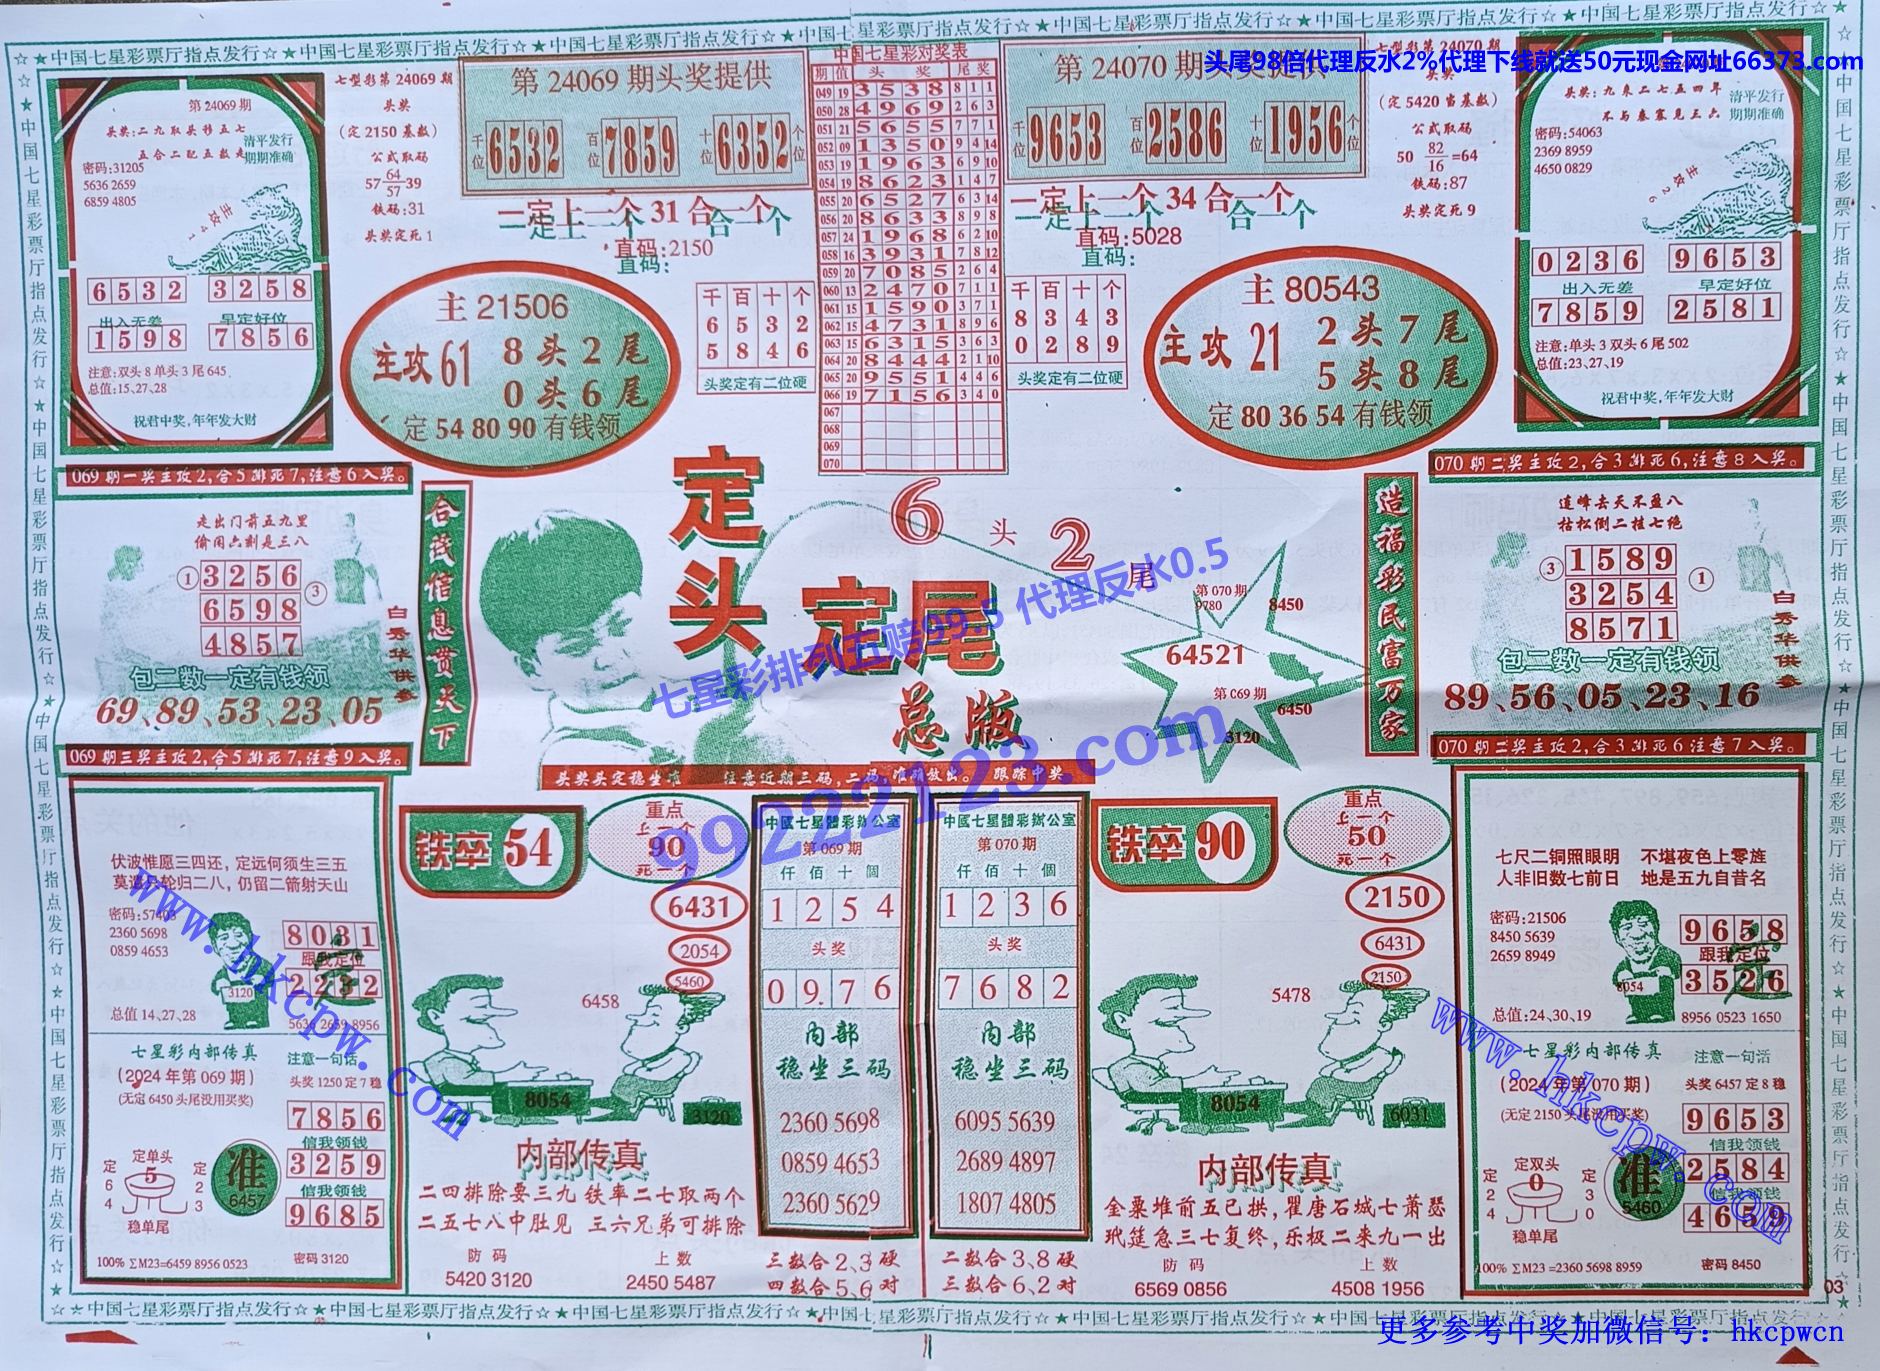 ☆★中国七星彩票厅指点发行☆★中国七星彩票厅指点发行☆★中国七星彩票厅指点发行☆★
头尾98倍代理反水2%代理下线就送50元现金网址66373.com
第24069期
头奖:二九取头移五七
五合二配五数走
清平发行
期期准确
密码:31205
5636 2659
6859 4805
主攻41
6532 3258
出入无差 早定好位
1598 7856
注意:双头8单头3尾645,
总值:15,27,28
祝君中奖,年年发大财
七型彩第24069期
头奖
(定2150基数)
公式取码
57 64/57 39
铁码:31
头奖定死1
第24069期头奖提供
千位 6532 百位 7859 十位 6352 个位
一定上一个31合一个
直码:2150
直码:
主21506
主攻61
8头2尾
0头6尾
定548090有钱领
千百十个
6532
5846
头奖定有二位硬
中国七星彩对奖表
期 值 头奖 尾奖
049 19 3538 8 1 1
050 28 4969 2 6 3
051 21 5655 7 7 1
052 09 1350 9 4 14
053 19 1963 6 9 10
054 19 8623 1 4 7
055 20 6527 6 3 14
056 20 8633 8 9 8
057 24 1968 6 2 10
058 16 3931 7 8 12
059 20 7085 2 6 4
060 13 2470 7 1 1
061 15 1590 3 7 1
062 15 4731 8 9 6
063 15 6315 3 6 3
064 20 8444 2 1 10
065 20 9551 4 4 6
066 19 7156 3 4 0
067
068
069
070
第24070期头奖提供
千位 9653 百位 2586 十位 1956 个位
一定上一个34合一个
直码:5028
直码:
千百十个
8343
0289
头奖定有二位硬
主80543
主攻21
2头7尾
5头8尾
定803654有钱领
七型彩第24070期
头奖
(定5420当基数)
公式取码
50 82/16 =64
铁码:87
头奖定死9
头奖:九来二七五四年
不与春寒见三六
清平发行
期期准确
密码:54063
2369 8959
4650 0829
主攻26
0236 9653
出入无差 早定好位
7859 2581
注意:单头3双头6尾502
总值:23,27,19
祝君中奖,年年发大财
069期一奖主攻2,合5排死7,注意6入奖。
走出门前五九里
偷闲六剩是三八
① 3256 ③
6598
4857
包二数一定有钱领
69、89、53、23、05
白秀华供参
069期三奖主攻2,合5排死7,注意9入奖。
合茂信息贯天下
定头定尾
总版
6头2尾
第070期
9780
8450
64521
第069期
6450
3120
七星彩排列五赔99.5 代理反水0.5
99222123.com
头奖头定稳坐准 注意近期三码,二码,准确放出。 跟踪中奖
造福彩民富万家
070期二奖主攻2,合3排死6,注意8入奖。
道峰去天不盈八
枯松倒二挂七绝
③ 1589 ①
3254
8571
包二数一定有钱领
89、56、05、23、16
白秀华供参
070期二奖主攻2,合3排死6注意7入奖。
伏波惟愿三四还,定远何须生三五
莫遣只轮归二八,仍留二箭射天山
密码:57403
2360 5698
0859 4653
3120
8031
跟我定位
2232
总值14、27、28
5636 2659 8956
七星彩内部传真
(2024年第069期)
(无定6450头尾没用买奖)
注意一句话
头奖1250定7稳
7856
信我领钱
3259
信我领钱
9685
定64
定单头
5
定23
稳单尾
准
6457
100% ∑M23=6459 8956 0523
密码3120
www.hkcpw.com
铁卒54
重点
上一个
90
死一个
6431
2054
5460
6458
8054
3120
内部传真
二四排除要三九 铁率二七取两个
二五七八中肚见 三六兄弟可排除
防码
5420 3120
上数
2450 5487
中國七星體彩辦公室
第069期
仟佰十個
1254
头奖
0976
内部
稳坐三码
2360 5698
0859 4653
2360 5629
三数合2、3硬
四数合5、6对
中國七星體彩辦公室
第070期
仟佰十個
1236
头奖
7682
内部
稳坐三码
6095 5639
2689 4897
1807 4805
二数合3、8硬
三数合6、2对
铁卒90
重点
上一个
50
死一个
2150
6431
2150
5478
8054
6031
内部传真
金粟堆前五已拱,瞿唐石城七萧瑟
玳筵急三七复终,乐极二来九一出
防码
6569 0856
上数
4508 1956
七尺二铜照眼明 不堪夜色上零旌
人非旧数七前日 地是五九自昔名
密码:21506
8450 5639
2659 8949
8054
9658
跟我定位
3526
总值:24、30、19
8956 0523 1650
七星彩内部传真
(2024年第070期)
(无定2150头尾没用买奖)
注意一句话
头奖6457定8稳
9653
信我领钱
2584
信我领钱
4659
定24
定双头
0
定30
稳单尾
准
5460
100% ∑M23=2360 5698 8959
密码8450
www.hkcpw.com
03
☆★中国七星彩票厅指点发行☆★中国七星彩票厅指点发行☆★中国七星彩票厅指点发行☆★
更多参考中奖加微信号：hkcpwcn